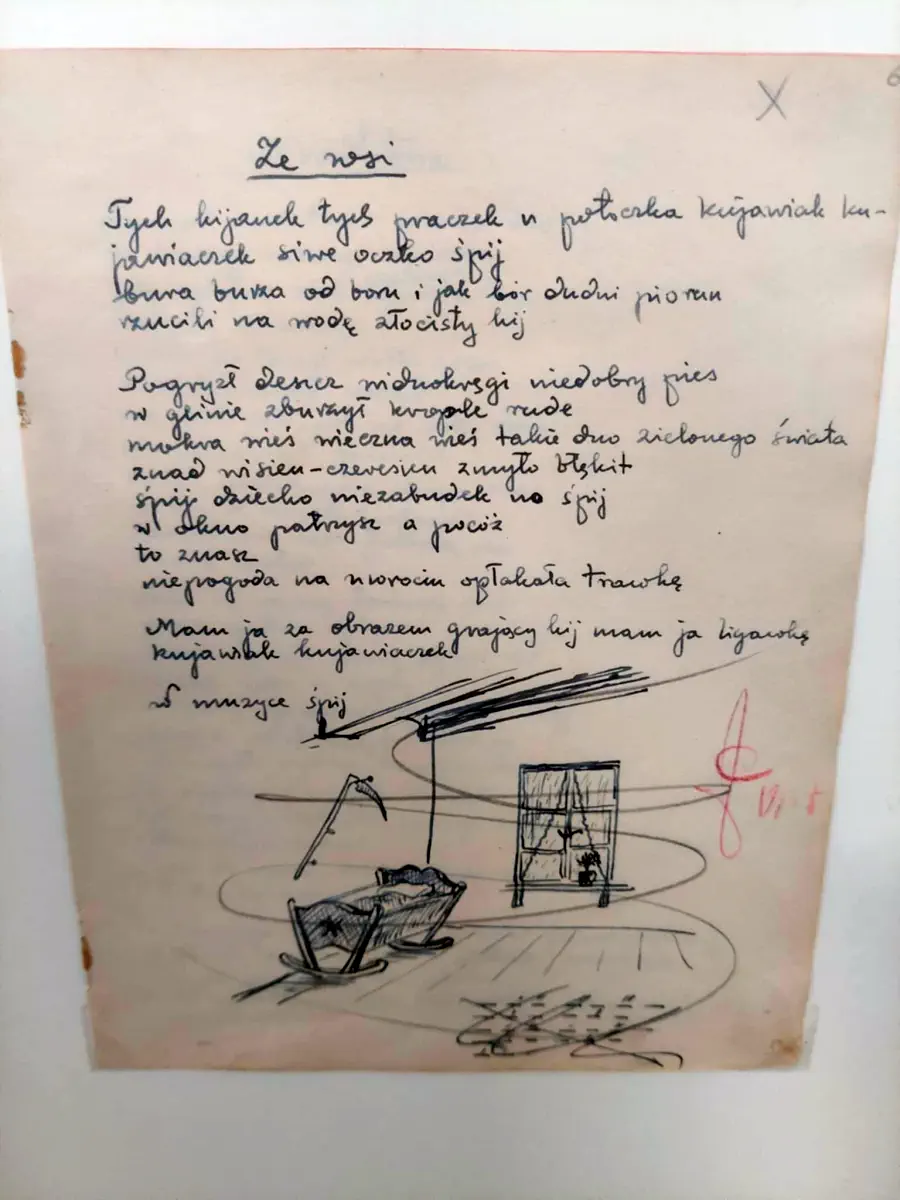 X
6
Ze wsi
Tych kijanek tych praczek u potoczka kujawiak ku-
jawiaczek siwe oczko śpij
bura burza od boru i jak bór dudni piorun
rzucili na wodę złocisty kij
Pogryzł deszcz widnokręgi niedobry pies
w glinie zburzył krople rude
mokra wieś wieczna wieś takie dno zielonego świata
znad wisien-czeresien zmyło błękit
śpij dziecko niezabudek no śpij
w okno patrzysz a pocóż
to znasz
niepogoda na uwrociu opłakała trawkę
Mam ja za obrazem grający kij mam ja ligawkę
kujawiak kujawiaczek
w muzyce śpij